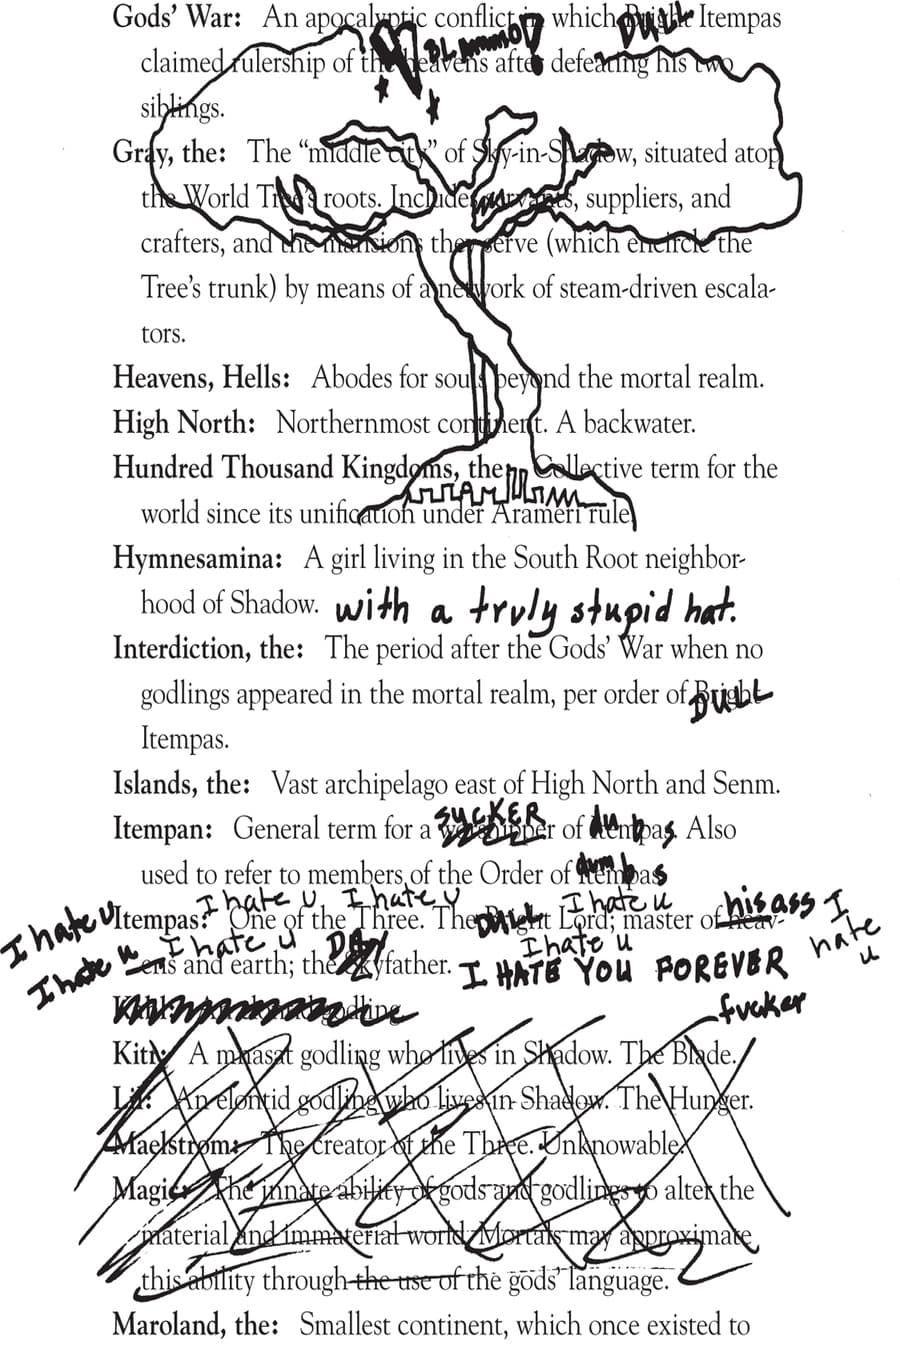 Gods’ War: An apocalyptic conflict in which DULL Itempas
BLAMMO
claimed rulership of the heavens after defeating his two
siblings.
Gray, the: The “middle city” of Sky-in-Shadow, situated atop
the World Tree’s roots. Includes servants, suppliers, and
crafters, and the mansions they serve (which encircle the
Tree’s trunk) by means of a network of steam-driven escala-
tors.
Heavens, Hells: Abodes for souls beyond the mortal realm.
High North: Northernmost continent. A backwater.
Hundred Thousand Kingdoms, the: Collective term for the
world since its unification under Arameri rule.
Hymnesamina: A girl living in the South Root neighbor-
hood of Shadow. with a truly stupid hat.
Interdiction, the: The period after the Gods’ War when no
godlings appeared in the mortal realm, per order of DULL
Itempas.
Islands, the: Vast archipelago east of High North and Senm.
Itempan: General term for a SUCKER of dumpas. Also
used to refer to members of the Order of dumbass
I hate u I hate u I hate u
I hate u Itempas: One of the Three. The DULL Lord; master of his ass I hate u
I hate u I hate u I hate u
and earth; the father. I HATE YOU FOREVER
fucker
godling
Kitr: A mnasat godling who lives in Shadow. The Blade.
Lil: An elontid godling who lives in Shadow. The Hunger.
Maelstrom: The creator of the Three. Unknowable.
Magic: The innate ability of gods and godlings to alter the
material and immaterial world. Mortals may approximate
this ability through the use of the gods’ language.
Maroland, the: Smallest continent, which once existed to